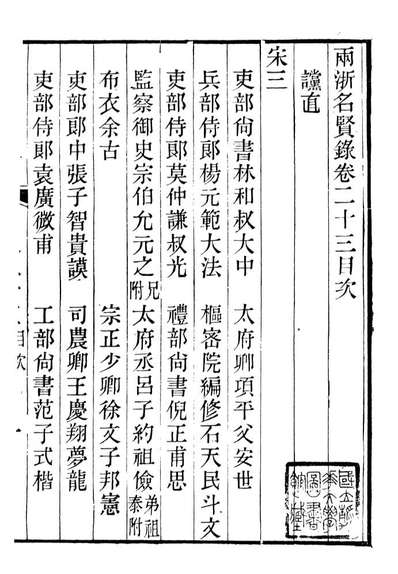 兩浙名賢錄卷二十三目次
讜直
宋三
吏部尚書林和叔大中 太府卿項平父安世
兵部侍郎楊元範大法 樞密院編修石天民斗文
吏部侍郎莫仲謙叔光 禮部尚書倪正甫思
監察御史宗伯允元之兄附 太府丞呂子約祖儉弟祖泰附
布衣余古 宗正少卿徐文子邦憲
吏部郎中張子智貴謨 司農卿王慶翔夢龍
吏部侍郎袁廣微甫 工部尚書范子式楷
目次 一